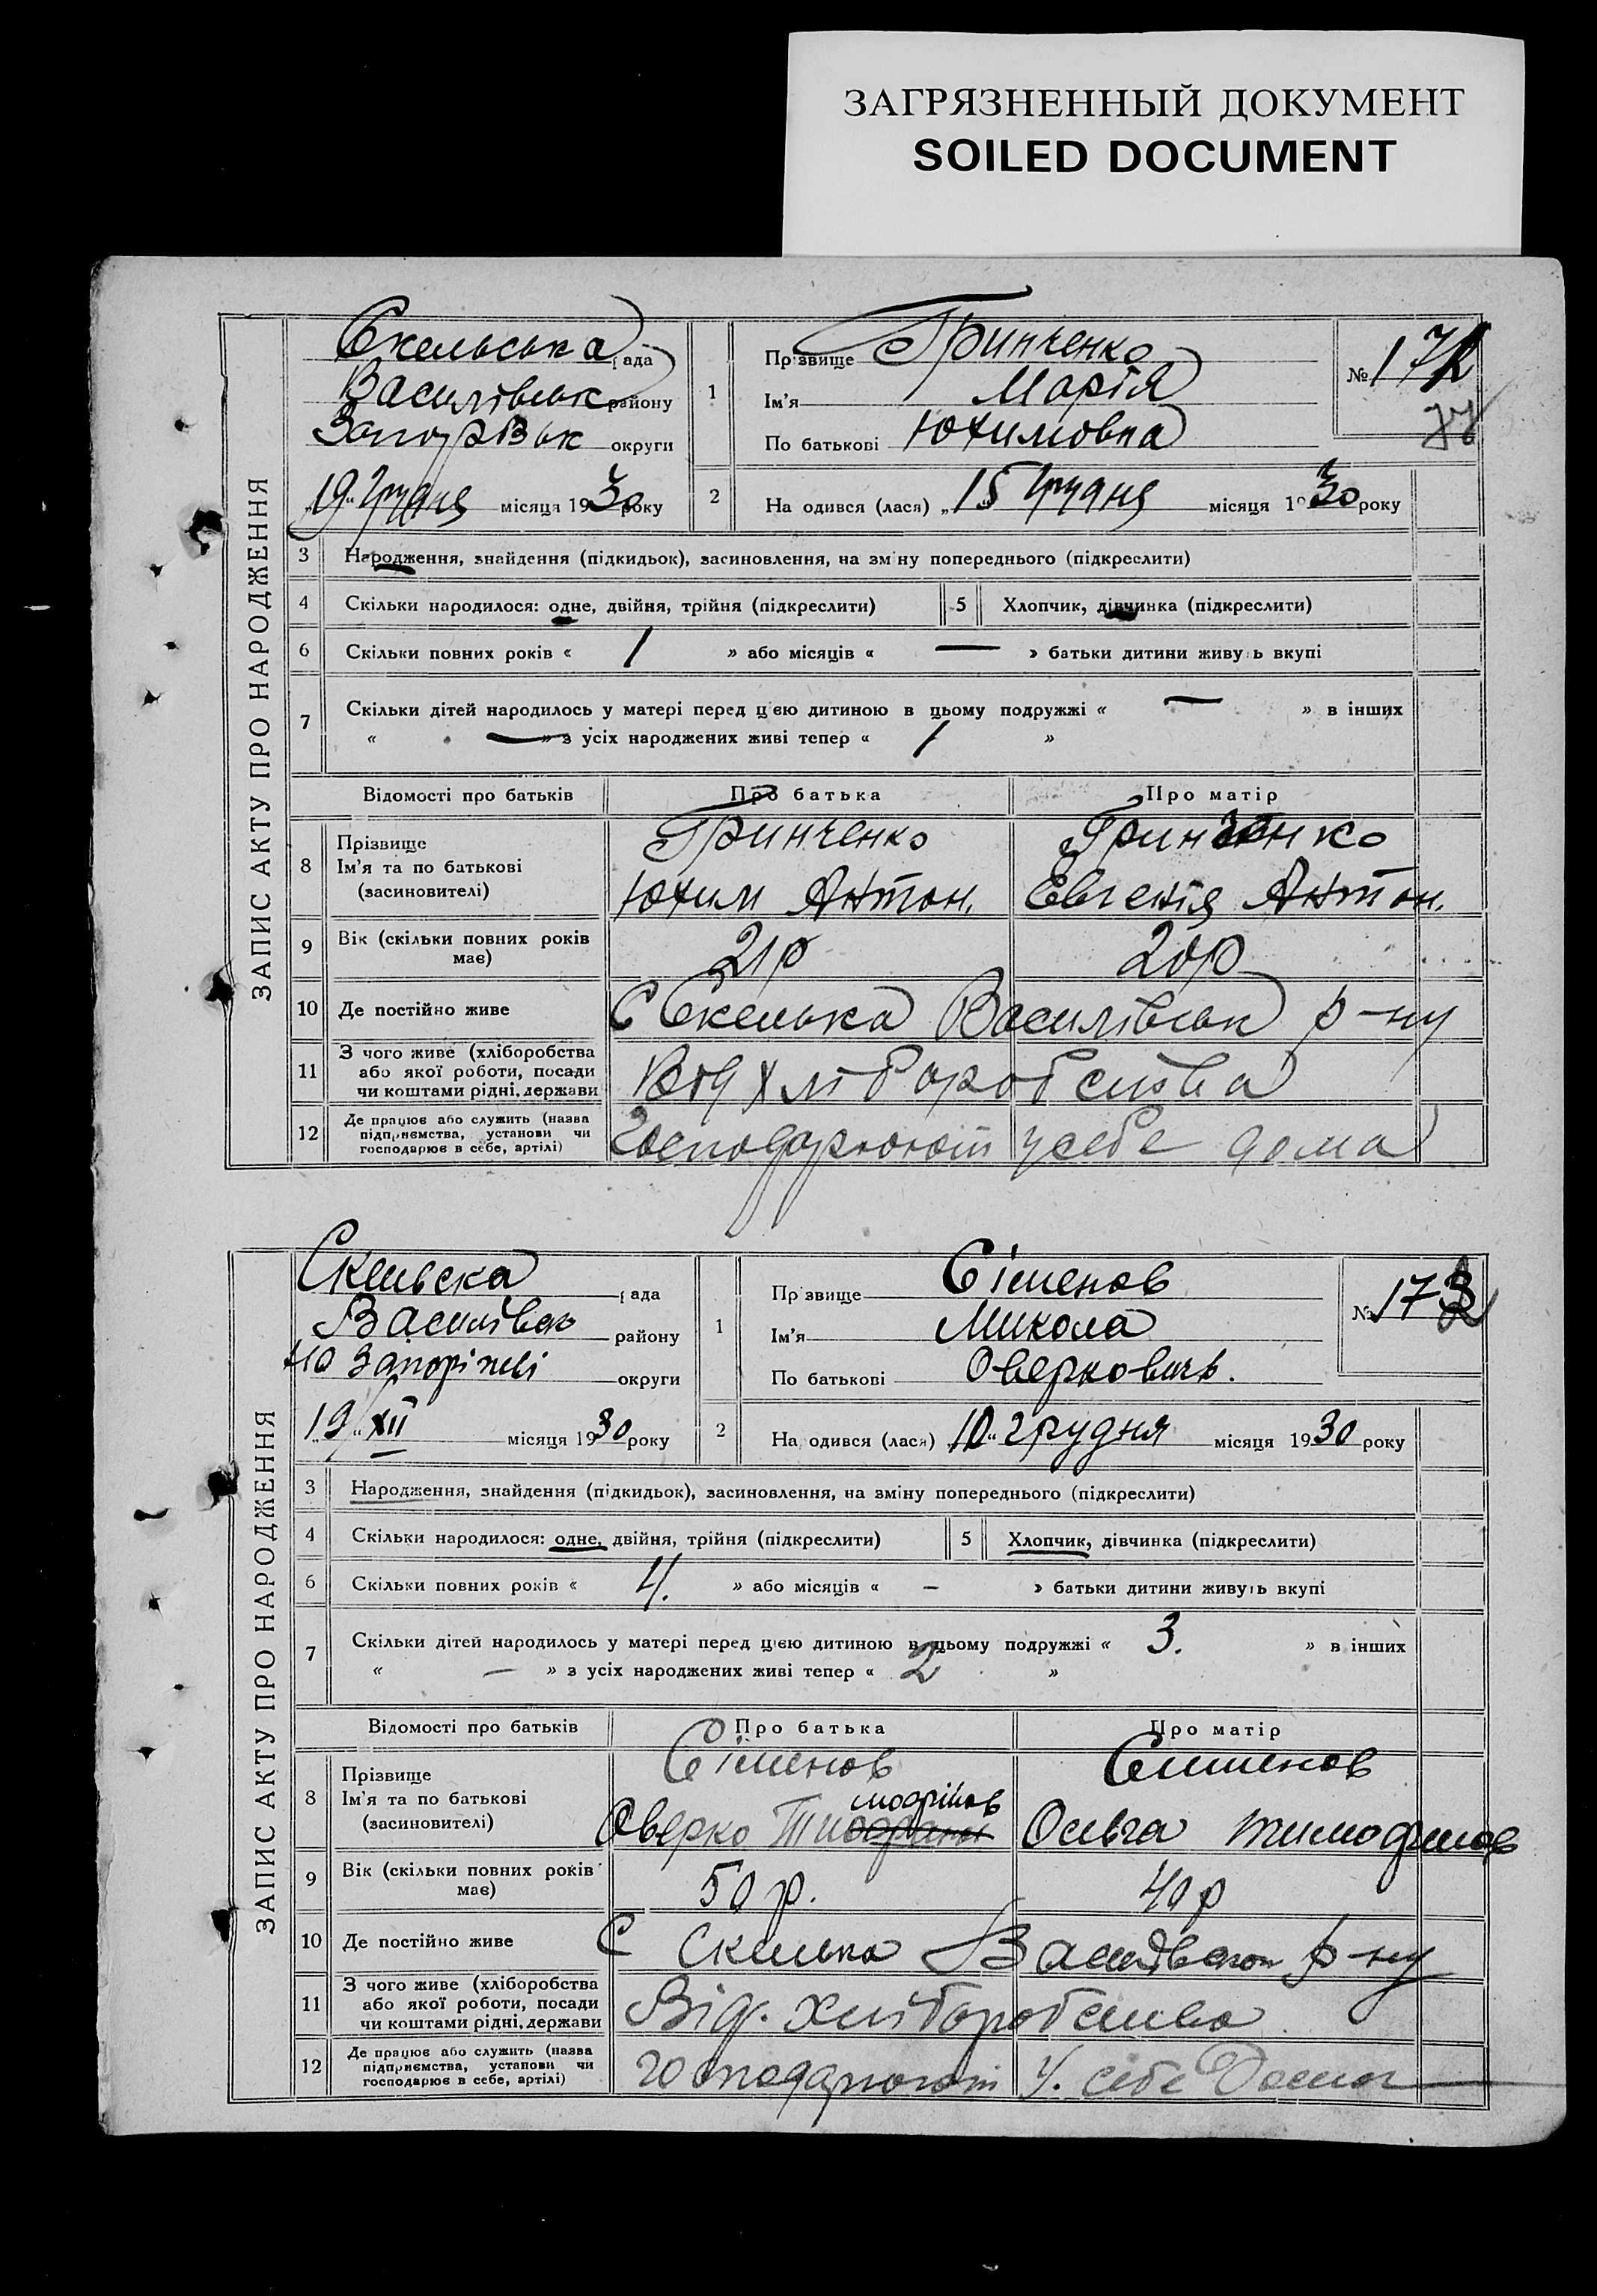 ЗАГРЯЗНЕННЫЙ ДОКУМЕНТ
SOILED DOCUMENT
ЗАПИС АКТУ ПРО НАРОДЖЕННЯ
Скельська рада
Василівськ району
Запорізьк округи
„19“ Грудня місяця 1930 року
1
Прізвище Грінченко
Ім'я Марія
По батькові Юхимовна
№ 172
2 На одився (лася) „15 Грудня місяця 1930 року
3 Народження, знайдення (підкидьок), засиновлення, на зміну попереднього (підкреслити)
4 Скільки народилося: одне, двійня, трійня (підкреслити) 5 Хлопчик, дівчинка (підкреслити)
6 Скільки повних років « 1 » або місяців « — » батьки дитини живуть вкупі
7 Скільки дітей народилось у матері перед цією дитиною в цьому подружжі « — » в інших
« — » з усіх народжених живі тепер « 1 »
Відомості про батьків Про батька Про матір
8 Прізвище
Ім'я та по батькові
(засиновителі)
Гринченко Гринченко
Юхим Антон. Евгенія Антон.
9 Вік (скільки повних років має) 21р 20р
10 Де постійно живе С Скелька Василівськ р-ну
11 З чого живе (хліборобства
або якої роботи, посади
чи коштами рідні, держави
Від хліборобства
12 Де працює або служить (назва
підприємства, установи чи
господарює в себе, артілі)
Господарюють у себе дома
ЗАПИС АКТУ ПРО НАРОДЖЕННЯ
Скельска рада
Василівск району
на Запоріжжі округи
„19“ XII місяця 1930 року
1
Прізвище Сіменов
Ім'я Микола
По батькові Оверковичь.
№ 173
2 На одився (лася) „10“ грудня місяця 1930 року
3 Народження, знайдення (підкидьок), засиновлення, на зміну попереднього (підкреслити)
4 Скільки народилося: одне, двійня, трійня (підкреслити) 5 Хлопчик, дівчинка (підкреслити)
6 Скільки повних років « 4. » або місяців « – » батьки дитини живуть вкупі
7 Скільки дітей народилось у матері перед цією дитиною в цьому подружжі « 3. » в інших
« — » з усіх народжених живі тепер « 2 »
Відомості про батьків Про батька Про матір
8 Прізвище
Ім'я та по батькові
(засиновителі)
Сіменов Сименов
Оверко Ольга Тимофиев
9 Вік (скільки повних років має) 50 р. 40 р
10 Де постійно живе С Скелька Василівског р-ну
11 З чого живе (хліборобства
або якої роботи, посади
чи коштами рідні, держави
Від. Хліборобства
12 Де працює або служить (назва
підприємства, установи чи
господарює в себе, артілі)
господарюють У. себе Дома